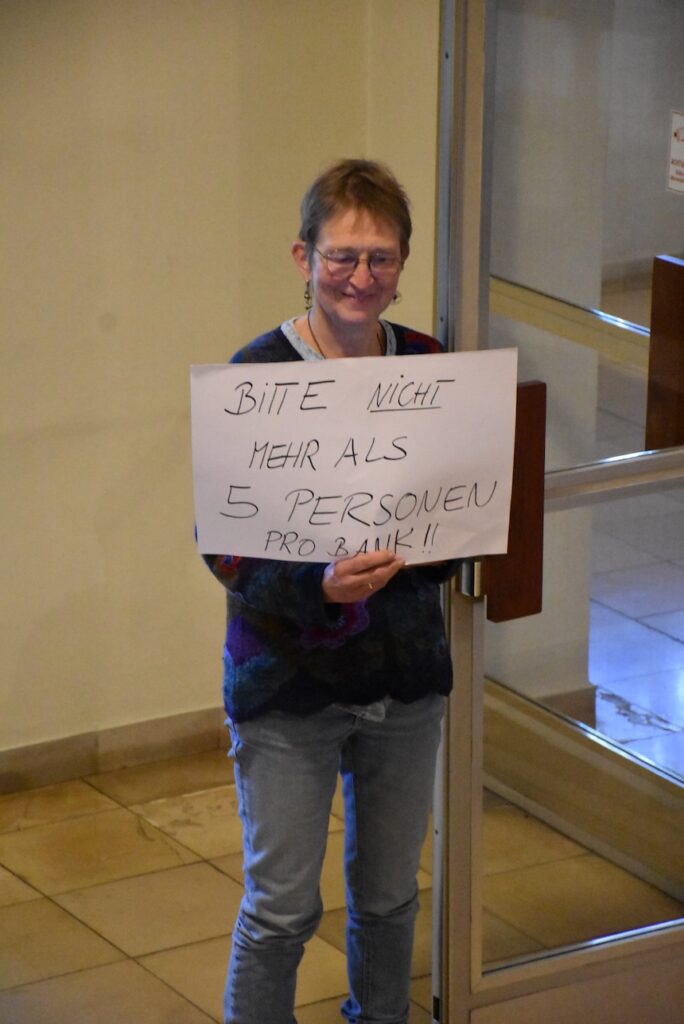 BITTE NICHT
MEHR ALS
5 PERSONEN
PRO BANK!!